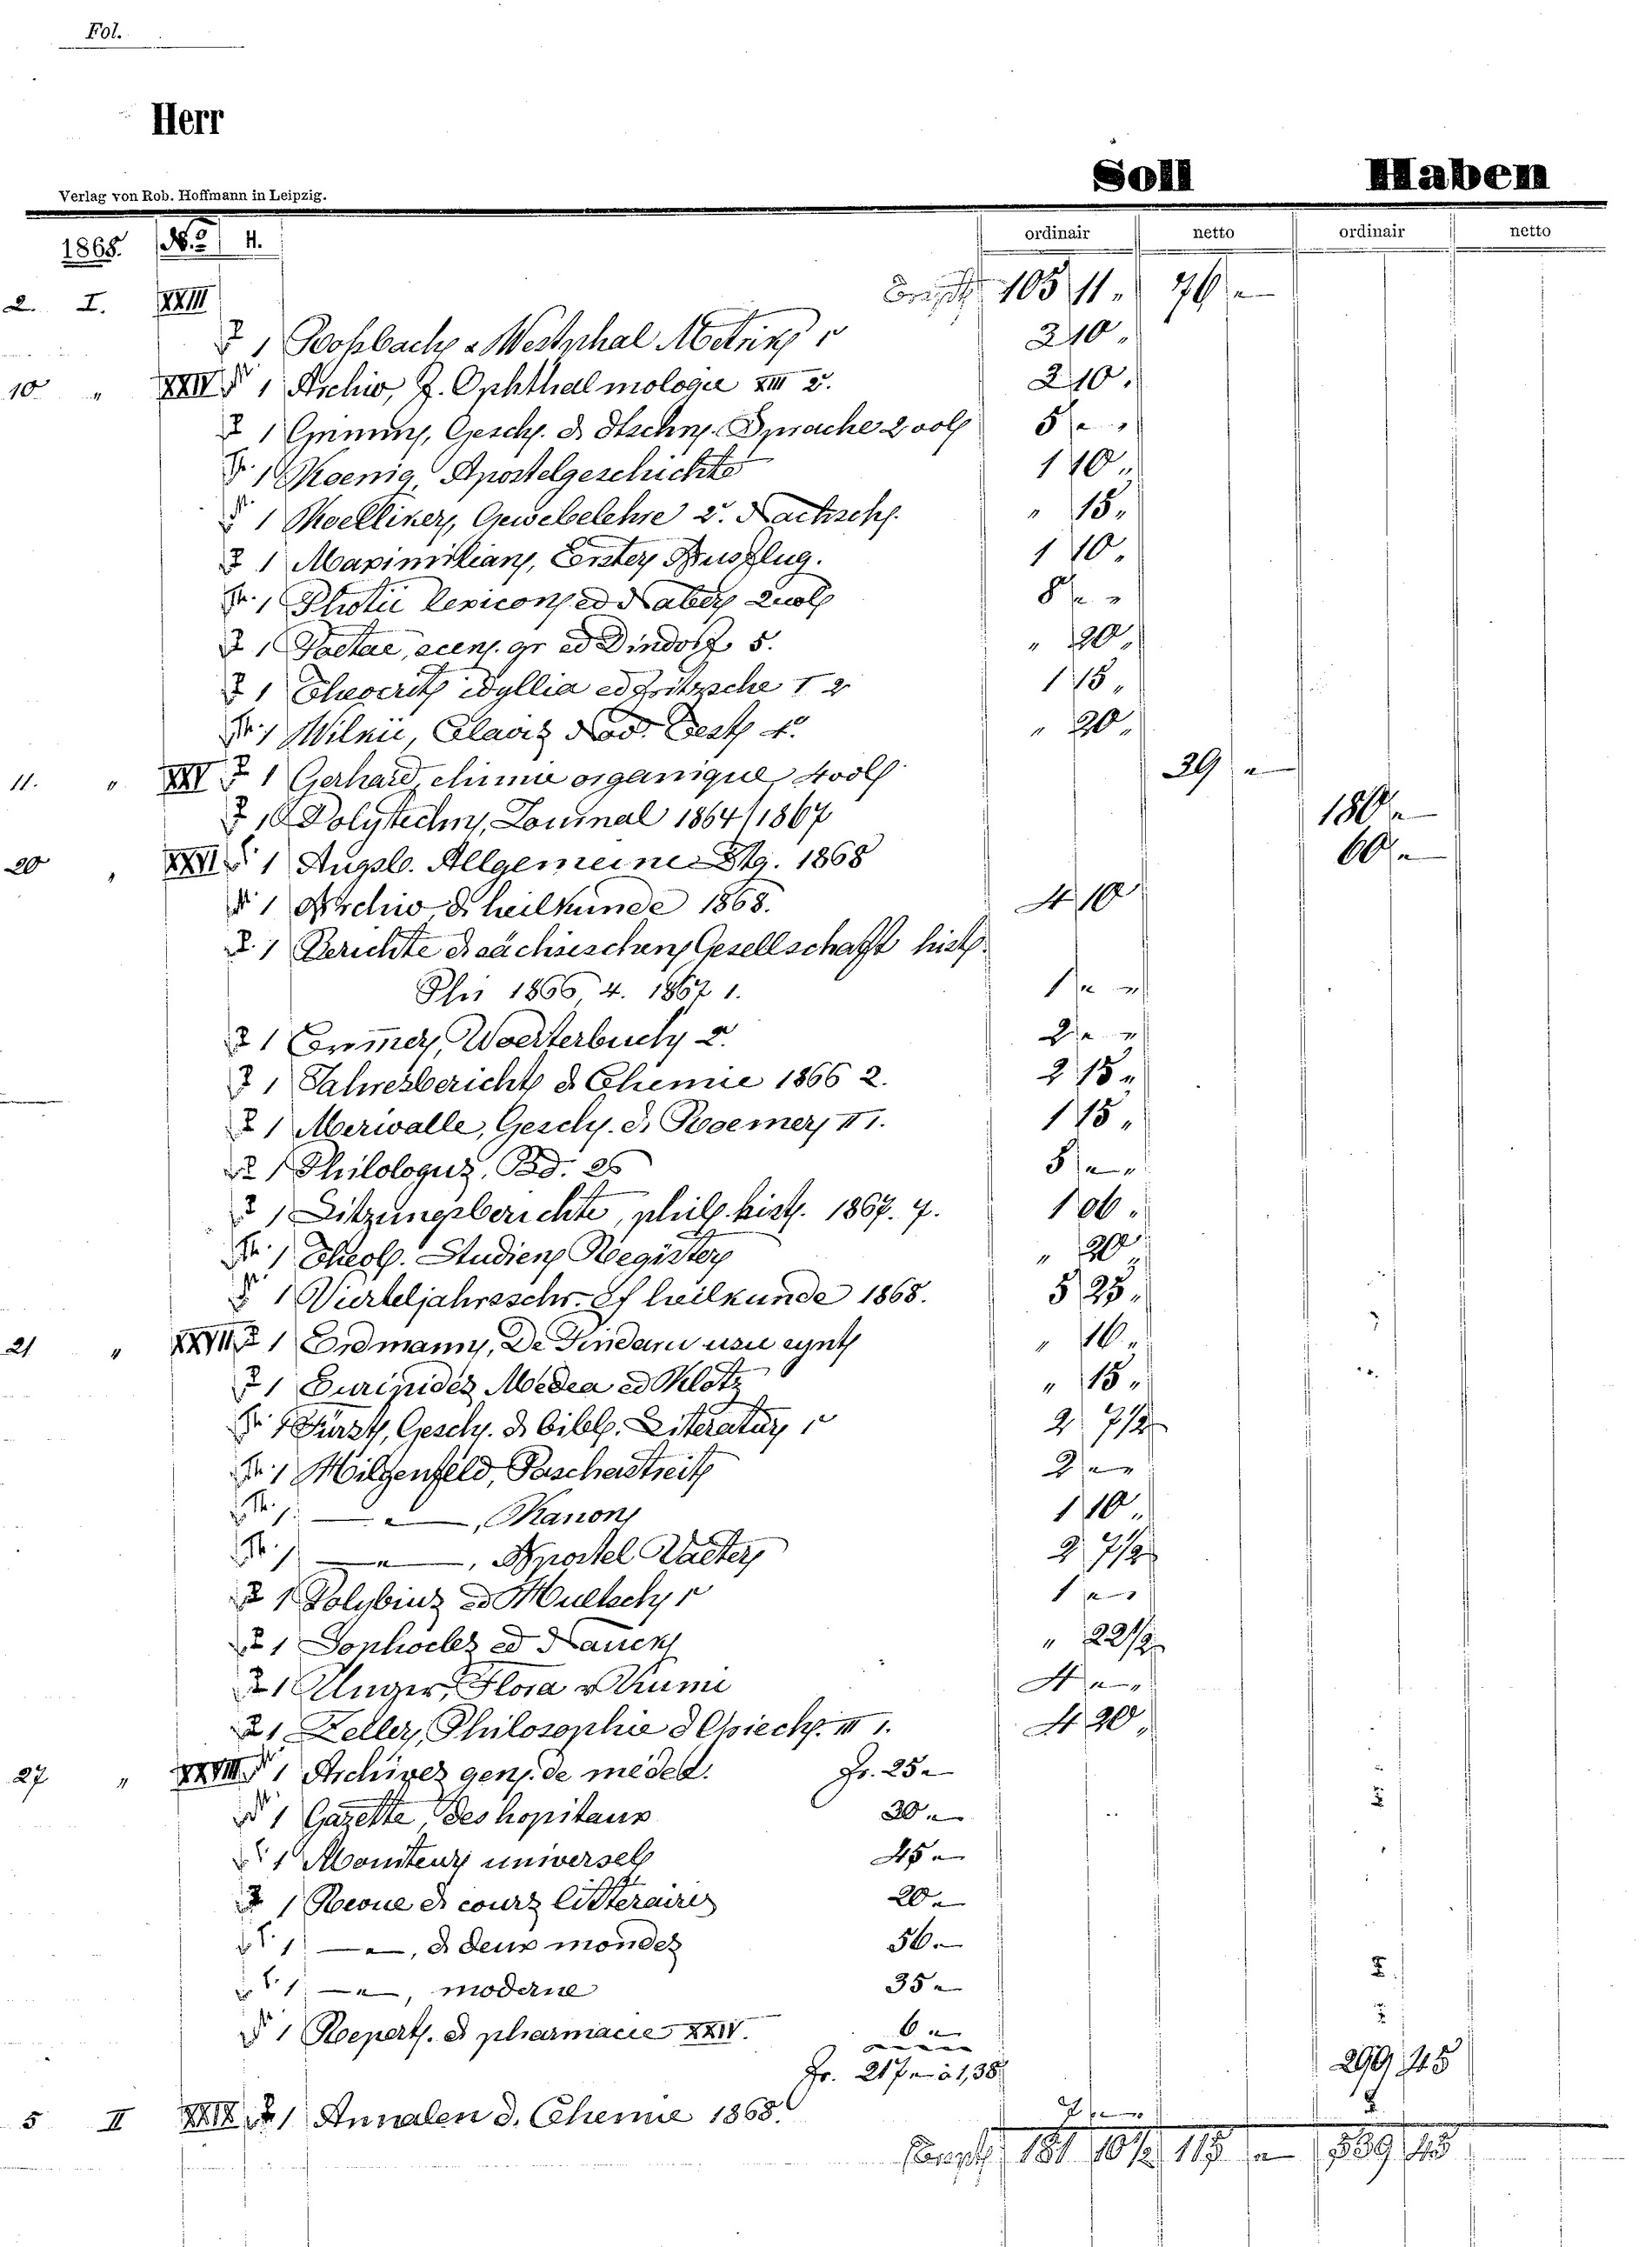 Fol.
Herr
Soll Haben
Verlag von Rob. Hoffmann in Leipzig.
1868. No. 4. ordinair netto ordinair netto
2. I. XXIII 105 11 „ 76 „
1 Rossbach u Westphal Metrik 1 2 10 „
10 „ XXIV 1 Archiv f. Ophthalmologie XIII 2. 2 10 „
1 Grimm, Gesch. d. dtschn. Sprache 2 vol 5 „ „
1 Koenig, Apostelgeschichte 1 10 „
1 Koelliker, Gewebelehre 2. „ 15 „
1 Maximilian, Erster Ausflug. 1 10 „
1 Photii lexicon ed Naber 2 vol 8 „ „
1 Poetae scen. gr ed Dindorf 5. „ 20 „
1 Theocriti idyllia ed Fritzsche I 2 1 15 „
1 Wilkii, Clavis Nov. Test 4. „ 20 „
11. „ XXV 1 Gerhard, chimie organique 4 vol 29 „
1 Polytechn. Journal 1864/1867 180 „
20 „ XXVI 1 Augsb. Allgemeine Ztg. 1868 60 „
1 Archiv d. heilkunde 1868. 4 10
1 Berichte d. sächsischen Gesellschaft hist.
Phi 1866, 4. 1867 1. 1 „ „
1 Cremer, Woerterbuch 2. 2 „ „
1 Jahresbericht d. Chemie 1866 2. 2 15 „
1 Merivalle, Gesch. d. Roemer, II 1. 1 15 „
1 Philologus, Bd. 26 5 „ „
1 Sitzungsberichte, phil. hist. 1867. 7. 1 06 „
1 Theol. Studien Register „ 20 „
1 Vierteljahrsschr. f heilkunde 1868. 5 25 „
21 „ XXVII 1 Erdmann, De Pindari usu synt „ 16 „
1 Euripides Medea ed Klotz „ 15 „
1 Fürst, Gesch. d. bibl. Literatur, 1 2 7 1/2
1 Hilgenfeld, Paschastreit 2 „ „
1 — „ —, Kanon 1 10 „
1 — „ —, Apostel Vaeter 2 7 1/2
1 Polybius ed Hultsch 1 1 „ „
1 Sophocles ed Nauck „ 22 1/2
1 Unger, Flora v Kumi 4 „ „
1 Zeller, Philosophie d Griech. III 1. 4 20 „
27 „ XXVIII 1 Archives gen. de méded. Fr. 25 „
1 Gazette des hopitaux 30 „
1 Moniteur universel 45 „
1 Revue d. cours litteraires 20 „
1 — „ —, d deux mondes 56 „
1 — „ —, moderne 35 „
1 Repert. d pharmacie XXIV. 6 „
Fr. 217 „ à 1,38 299 45
5 II XXIX 1 Annalen d. Chemie 1868. 7 „ „
181 10 1/2 115 „ 539 45